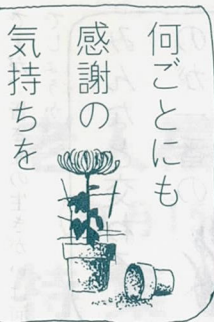 何ごとにも
感謝の
気持ちを